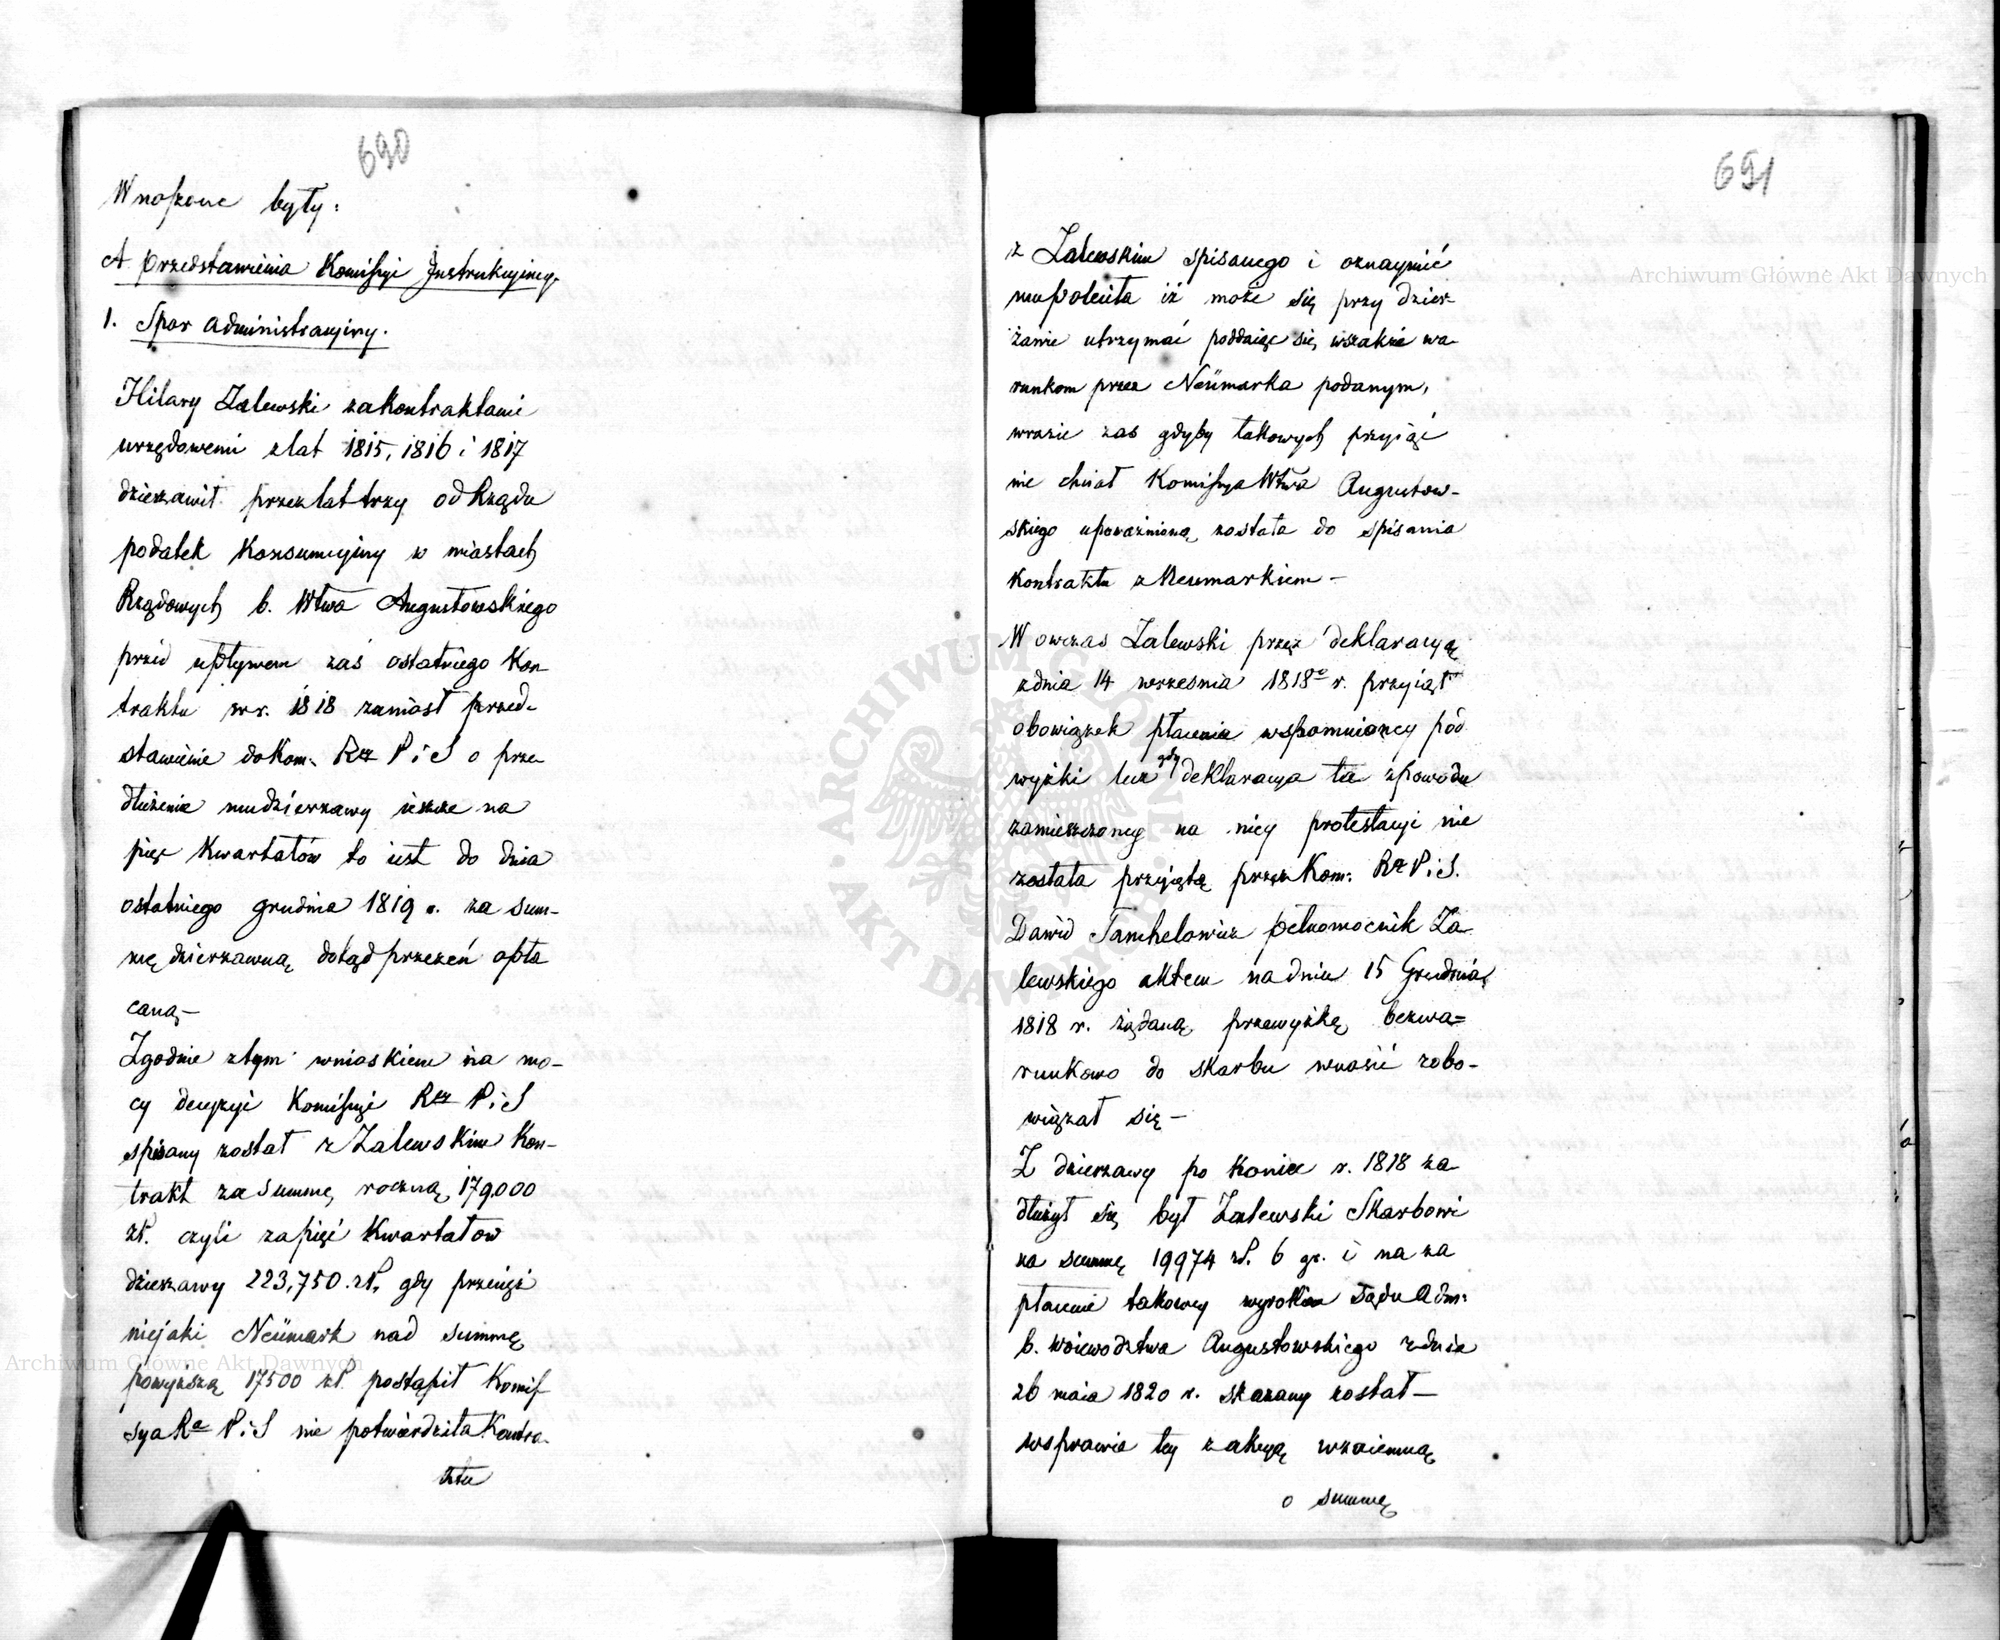 690
Wnoszone były:
A. Przedstawienia Komissyi Instrukcyiney.
1. Spor administracyiny.
Hilary Zalewski zakontraktami
urzędowemi z lat 1815, 1816 i 1817
dzierzawił przez lat trzy od Rządu
podatek Konsumcyiny w miastach
Rządowych b. Wtwa Augustowskiego
przed upływem zaś ostatniego Kon-
traktu w r. 1818 zaniosł przed-
stawienie do Kom: Rz P i S o prze
dłużenie mu dzierzawy ieszcze na
pięć Kwartałów to iest do dnia
ostatniego grudnia 1819 r. za sum-
mę dzierzawną dotąd przezeń opła
caną –
Zgodnie z tym wnioskiem na mo-
cy decyzyi Komissyi Rz P i S
spisany został z Zalewskim Kon-
trakt za summę roczną 179,000
zł. czyli za pięć Kwartałow
dzierzawy 223,750 zł. gdy przecięż
niejaki Neümark nad summę
powyższą 17500 zł. postąpił Komis
sya Rz P i S nie potwierdziła Kontra
ktu
691
z Zalewskim spisanego i oznaymić
mu poleciła iż może się przy dzier
żawie utrzymać poddaiąc się wszakże wa-
runkom przez Neümarka podanym,
wrazie zas gdyby takowych przyiąć
nie chciał Komissya Wtwa Augustow-
skiego upoważnioną została do spisania
Kontraktu z Neumarkiem –
Wowczas Zalewski przez deklaracyą
z dnia 14 wrzesnia 1818 r. przyiął
obowiązek płacenia wspomnioney pod
wyżki lecz gdy deklaracya ta z powodu
zamieszczoney na niey protestacyi nie
została przyiętą przez Kom: Rz P. i S.
Dawid Tanchelowicz pełnomocnik Za
lewskiego aktem na dniu 15 Grudnia
1818 r. żądaną przewyżkę bezwa=
runkowo do skarbu wnosić zobo-
wiązał się –
Z dzierzawy po koniec r. 1818 za
dłużył się był Zalewski Skarbowi
na summę 19974 zł. 6 gr. i na za
płacenie takowey wyrokiem Sądu Adm:
b. woiewodztwa Augustowskiego z dnia
26 maia 1820 r. skazany został –
w sprawie tey z akcyą wzaiemną
o summę
Archiwum Główne Akt Dawnych
Archiwum Główne Akt Dawnych
ARCHIWUM GŁÓWNE AKT DAWNYCH